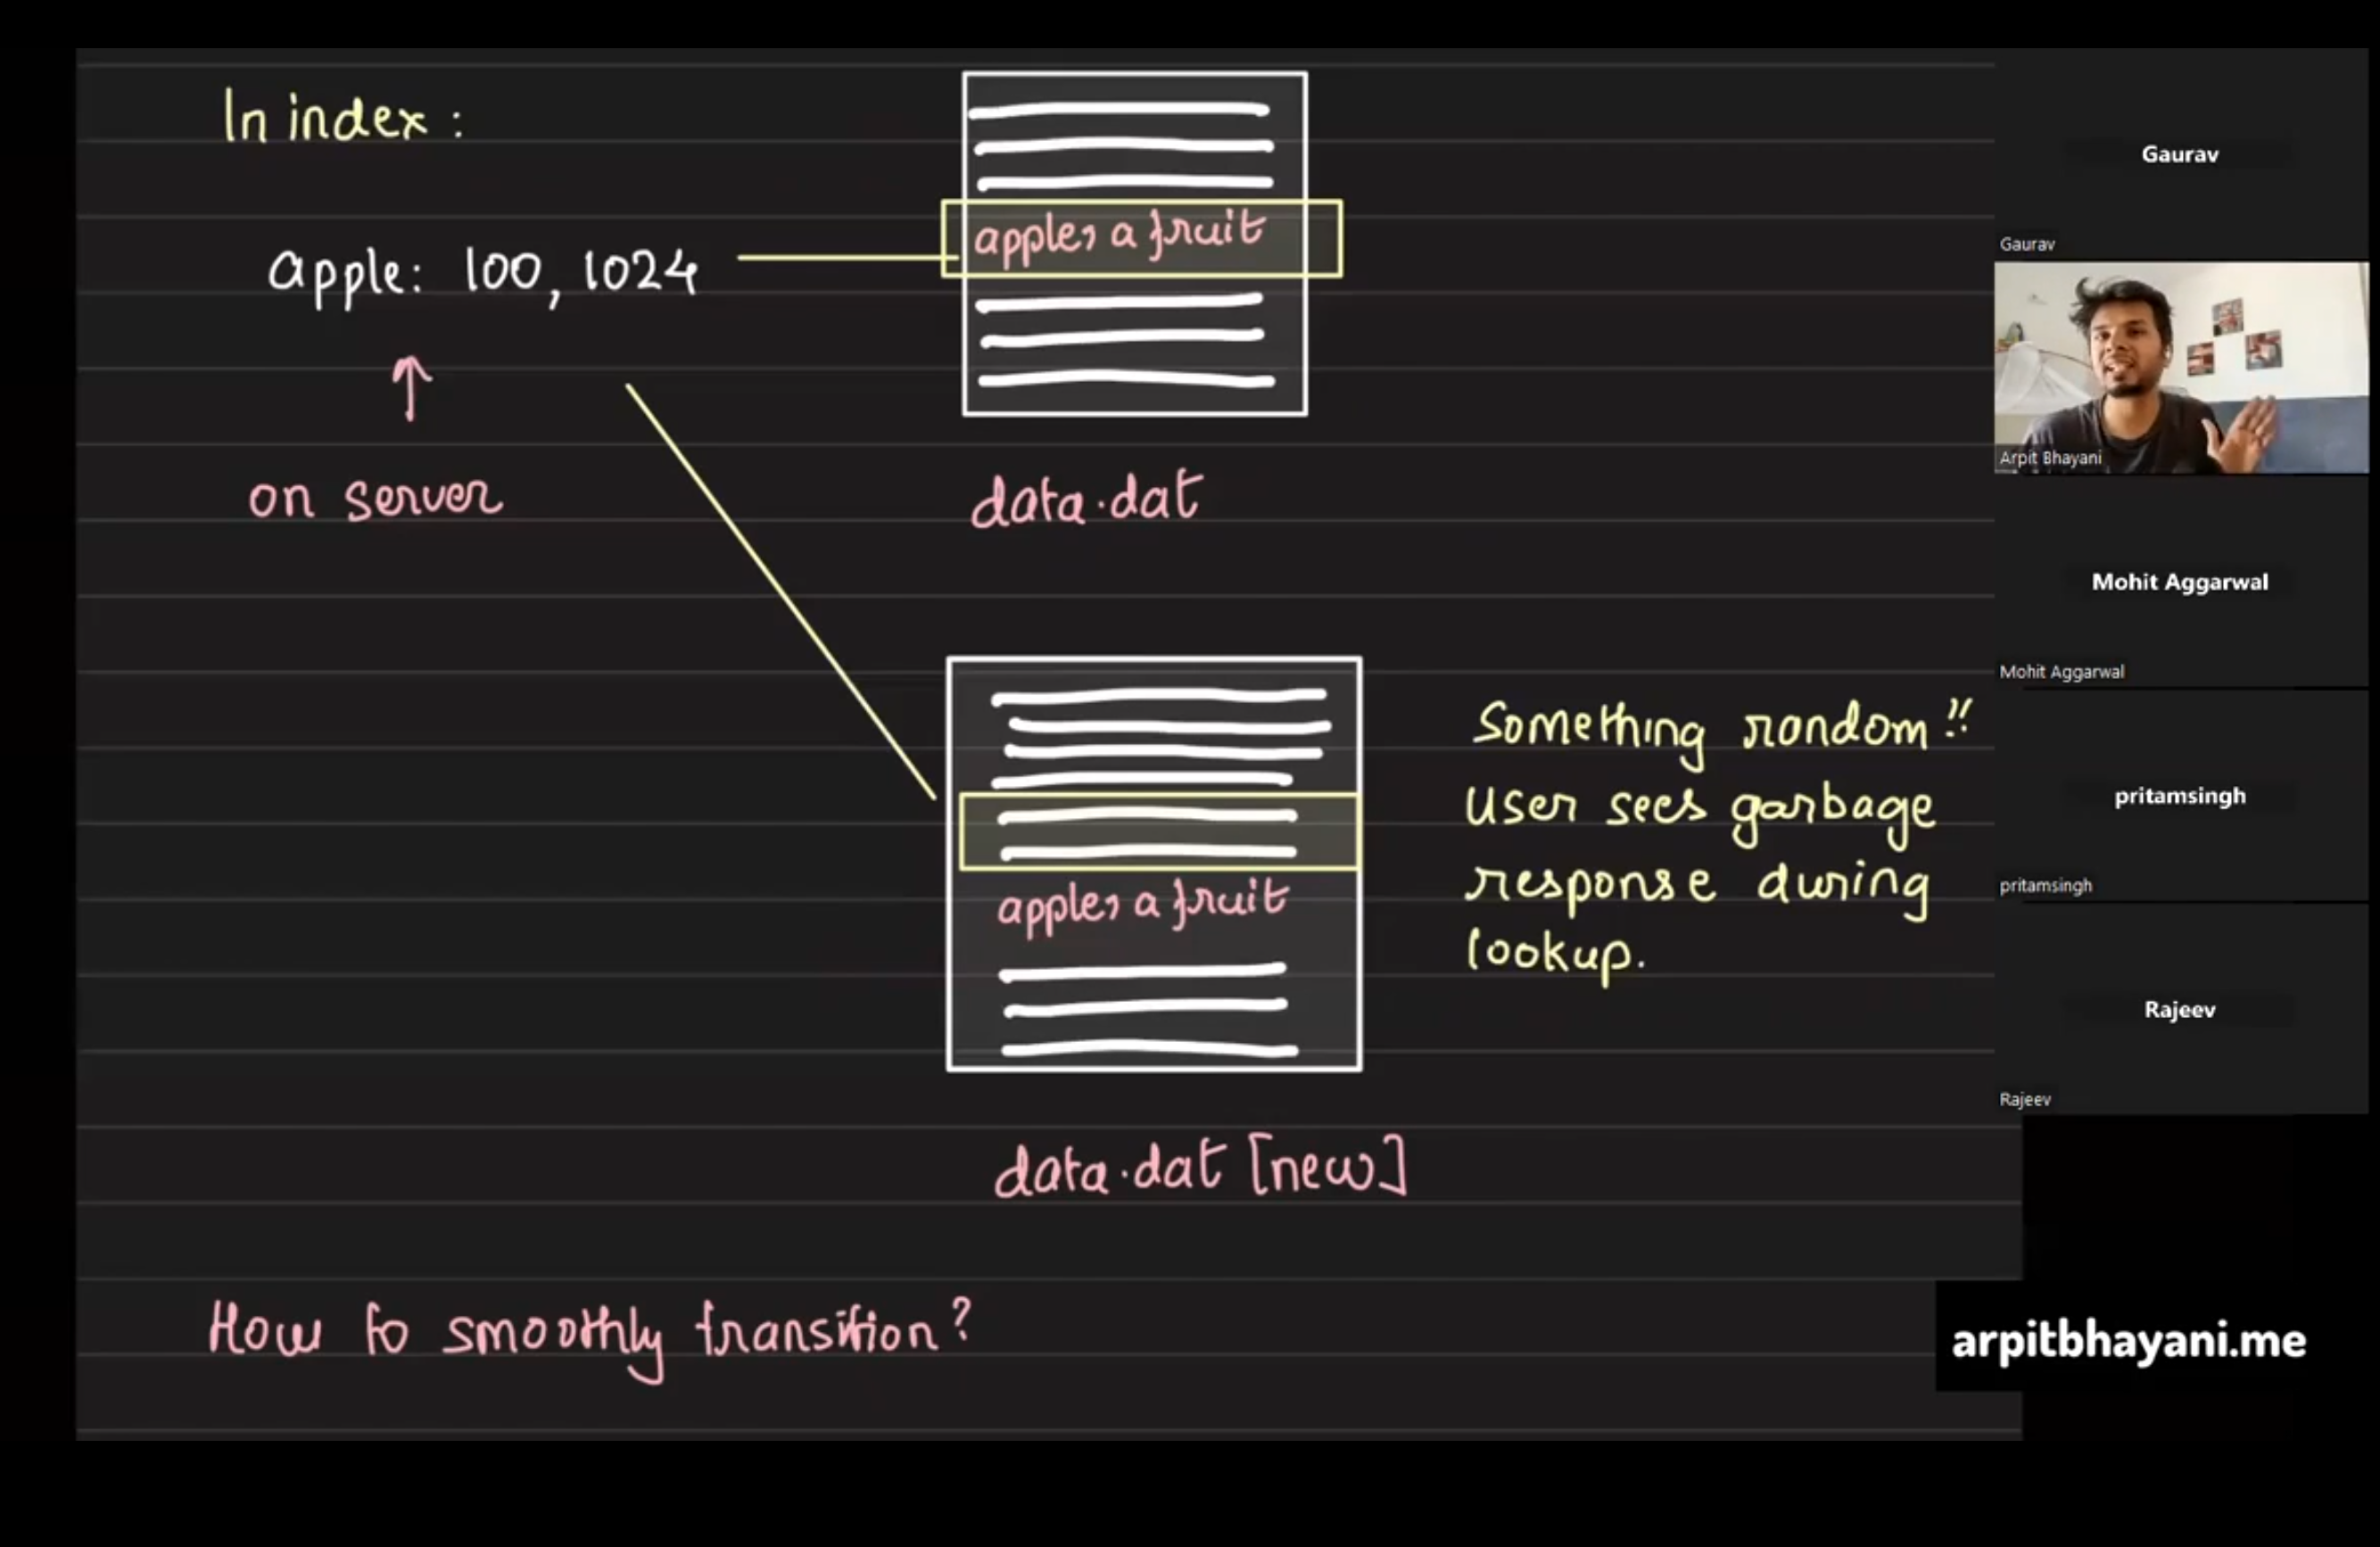 In index :
apple: 100, 1024
on server
apple, a fruit
data.dat
apple, a fruit
data.dat [new]
Something random!!
User sees garbage
response during
lookup.
How to smoothly transition?
Gaurav
Gaurav
Arpit Bhayani
Mohit Aggarwal
Mohit Aggarwal
pritamsingh
pritamsingh
Rajeev
Rajeev
arpitbhayani.me